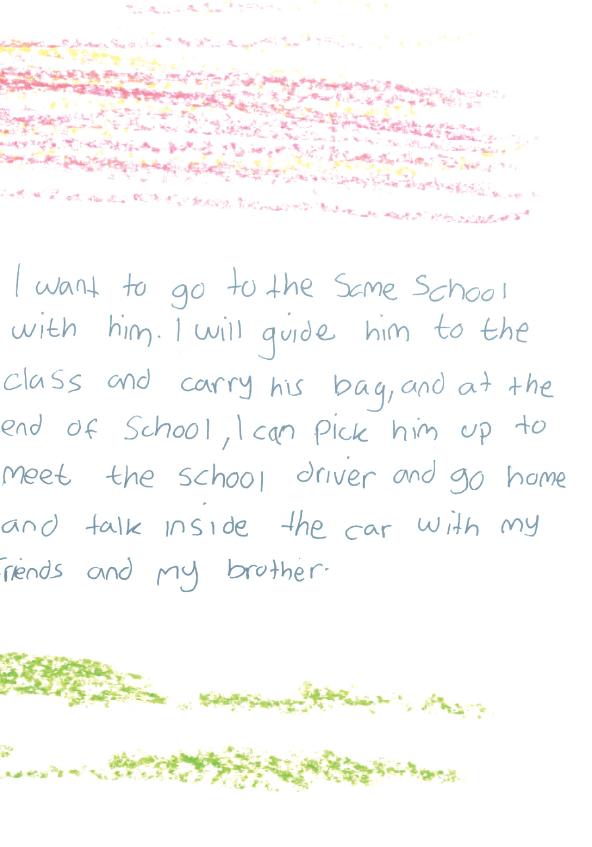 I want to go to the Same School
with him. I will guide him to the
class and carry his bag, and at the
end of School, I can Pick him up to
meet the school driver and go home
and talk inside the car with my
friends and my brother.